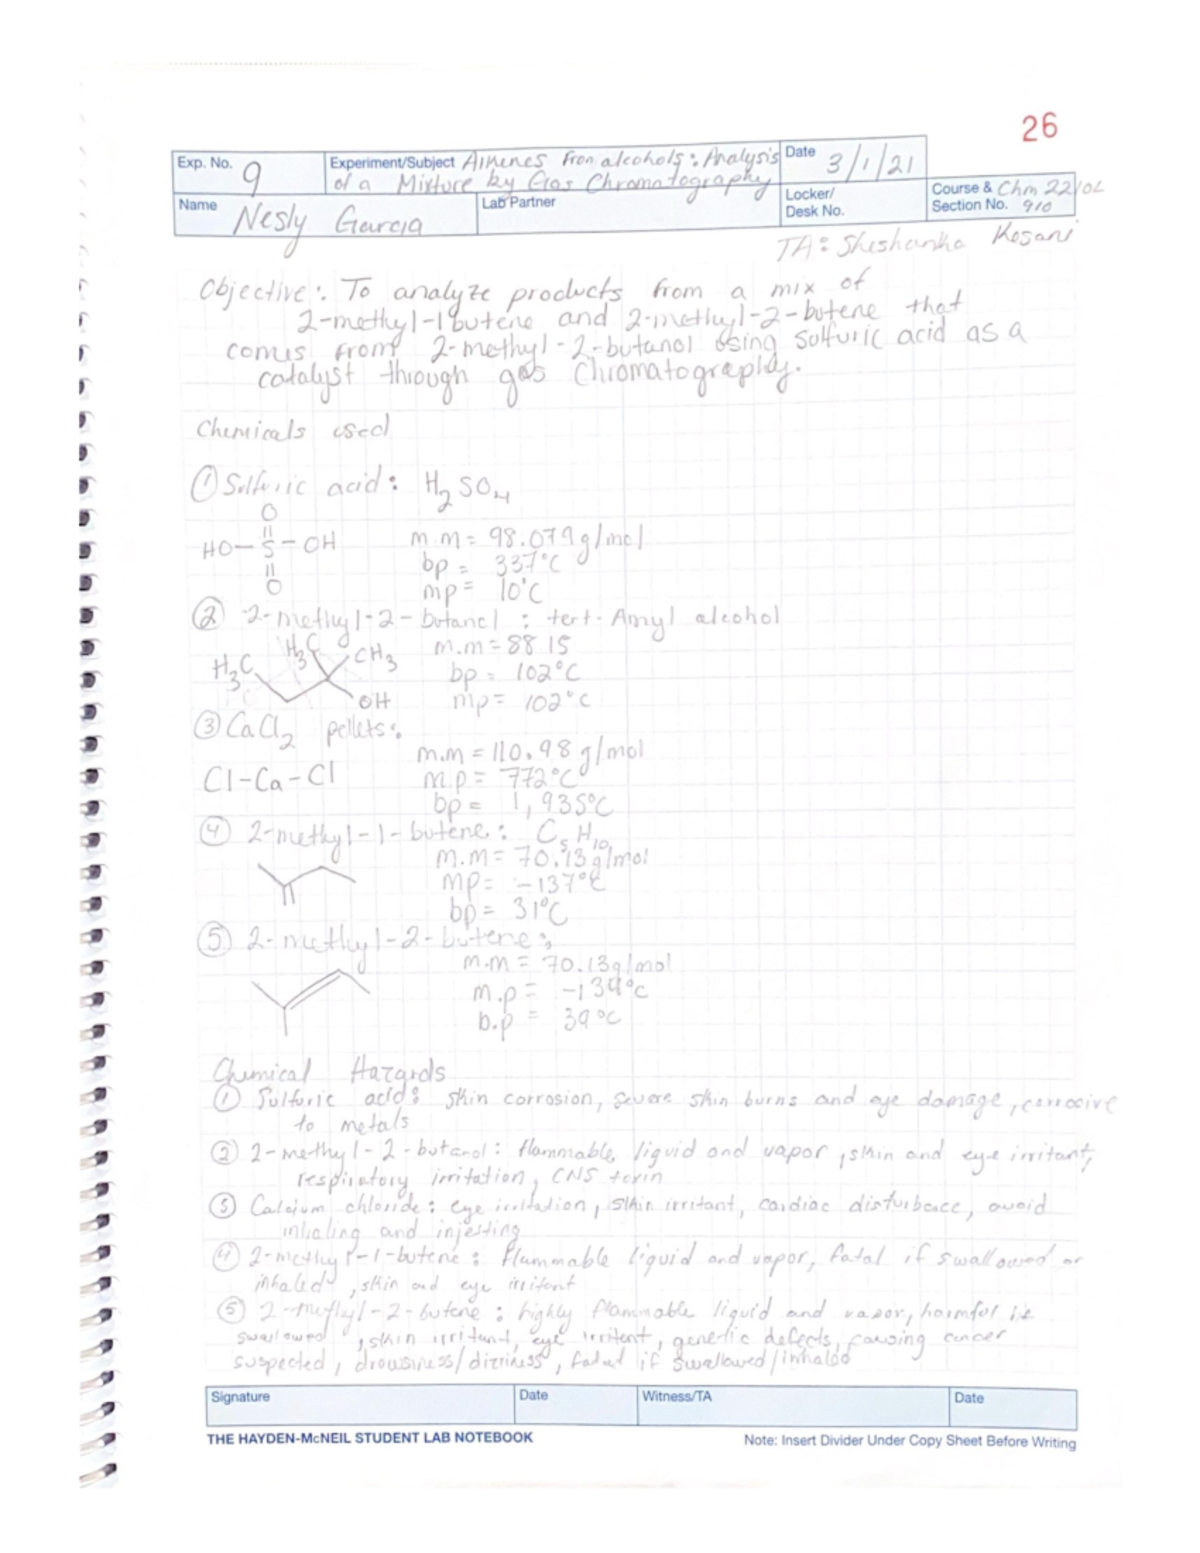 26
Exp. No. 9
Experiment/Subject Alkenes From alcohols: Analysis
of a Mixture by Gas Chromatography
Date 3/1/21
Name Nesly Garcia
Lab Partner
Locker/
Desk No.
Course & Chm 2210L
Section No. 910
TA: Sheshanka Kesani
Objective: To analyze products from a mix of
2-methyl-1butene and 2-methyl-2-butene that
comes from 2-methyl-2-butanol using sulfuric acid as a
catalyst through gas chromatography.
Chemicals used
① Sulfuric acid: H2SO4
O
HO-S-OH
O
m.m= 98.079g/mol
bp = 337°C
mp= 10°C
② 2-methyl-2-butanol: tert-Amyl alcohol
H3C H3C CH3
OH
m.m=88.15
bp= 102°C
mp= 102°C
③ CaCl2 pellets:
Cl-Ca-Cl
m.m=110.98g/mol
m.p= 772°C
bp= 1,935°C
④ 2-methyl-1-butene: C5H10
m.m=70.13g/mol
mp= -137°C
bp= 31°C
⑤ 2-methyl-2-butene:
m.m= 70.13g/mol
m.p= -134°C
b.p = 39°C
Chemical Hazards
① Sulfuric acid: skin corrosion, severe skin burns and eye damage, corrocive
to metals
② 2-methyl-2-butanol: flammable liquid and vapor, skin and eye irritant,
respiratory irritation, CNS toxin
③ Calcium chloride: eye irritation, skin irritant, cardiac disturbance, avoid
inhaling and injesting
④ 2-methyl-1-butene: flammable liquid and vapor, fatal if swallowed or
inhaled, skin and eye irritant
⑤ 2-methyl-2-butene: highly flammable liquid and vapor, harmful i.e.
swallowed, skin irritant, eye irritent, genetic defects, causing cancer
suspected, drowsiness/dizziness, fatal if swallowed/inhaled
Signature
Date
Witness/TA
Date
THE HAYDEN-McNEIL STUDENT LAB NOTEBOOK
Note: Insert Divider Under Copy Sheet Before Writing